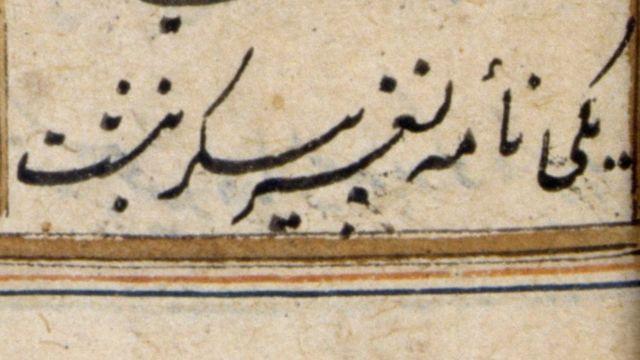 یکی نامه نغز بیکر نبشت